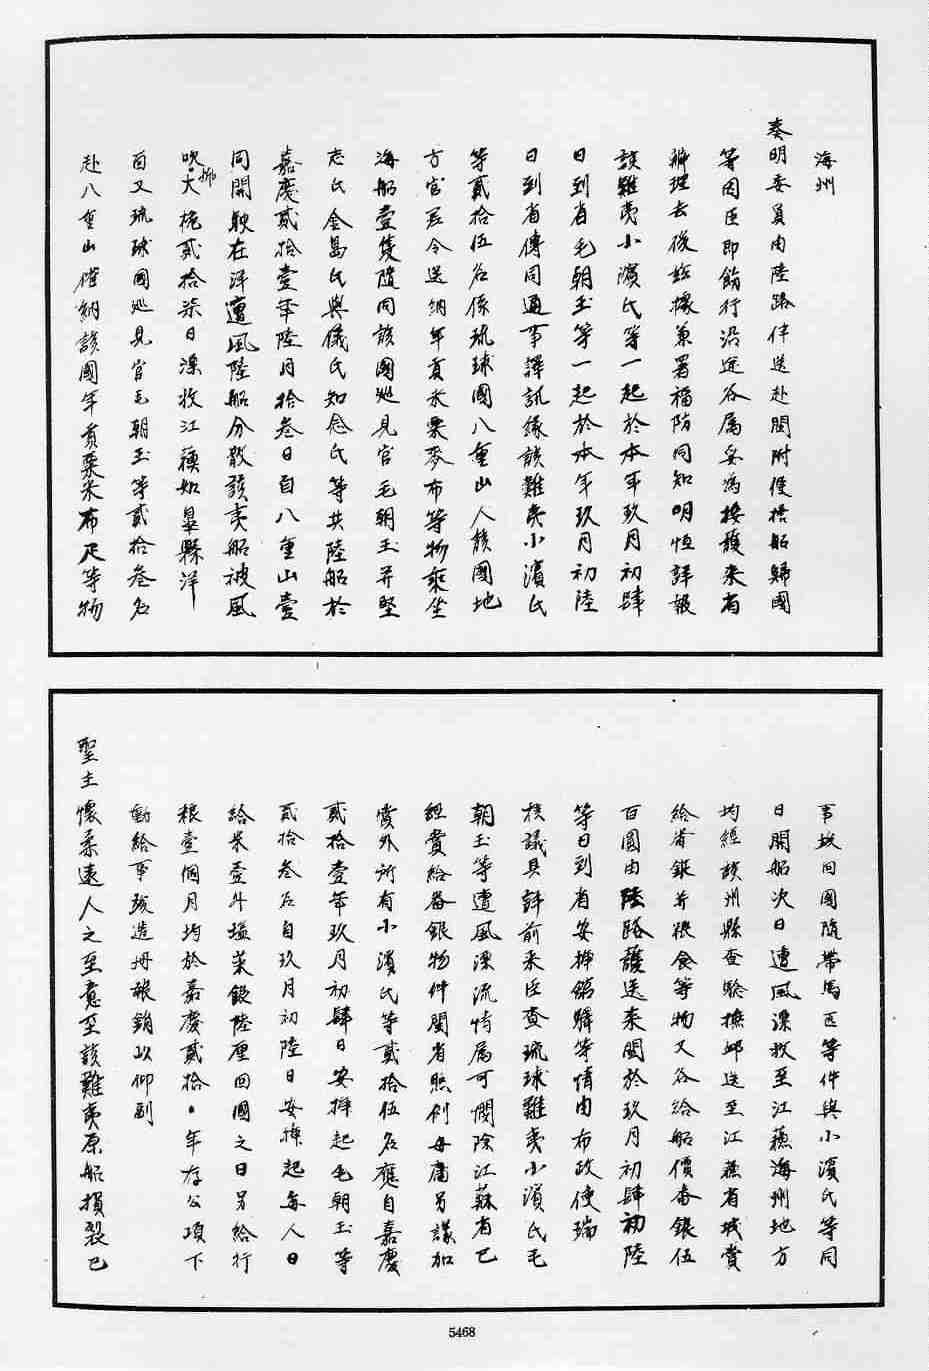 海州
奏明委員由陸路伴送赴閩附便搭船歸國
等因臣即飭行沿途各屬妥為接護來省
辦理去後茲據兼署福防同知明恒詳報
該難夷小濱氏等一起於本年玖月初肆
日到省毛朝玉等一起於本年玖月初陸
日到省傳同通事譯訊緣該難夷小濱氏
等貳拾伍名係琉球國八重山人該國地
方官差令送納年貢米粟麥布等物乘坐
海船壹隻隨同該國巡見官毛朝玉并堅
志氏金島氏與儀氏知念氏等共陸船於
嘉慶貳拾壹年陸月拾叁日自八重山壹
同開駛在洋遭風陸船分散該夷船被風
吹折大桅貳拾柒日漂收江蘇如皋縣洋
面又琉球國巡見官毛朝玉等貳拾叁名
赴八重山催納該國年貢粟米布疋等物
事竣回國隨帶馬匹等件與小濱氏等同
日開船次日遭風漂救至江蘇海州地方
均經該州縣查驗撫卹送至江蘇省城賞
給番銀并粮食等物又各給船價番銀伍
百圓由陸路護送來閩於玖月初肆初陸
等日到省安揷館驛等情由布政使瑞
核議具詳前來臣查琉球難夷小濱氏毛
朝玉等遭風漂流情屬可憫除江蘇省已
經賞給番銀物件閩省照例毋庸另議加
賞外所有小濱氏等貳拾伍名應自嘉慶
貳拾壹年玖月初肆日安揷起毛朝玉等
貳拾叁名自玖月初陸日安揷起每人日
給米壹升塩菜銀陸厘回國之日另給行
粮壹個月均於嘉慶貳拾年存公項下
動給事竣造册報銷以仰副
聖主懷柔遠人之至意至該難夷原船損裂已
5468